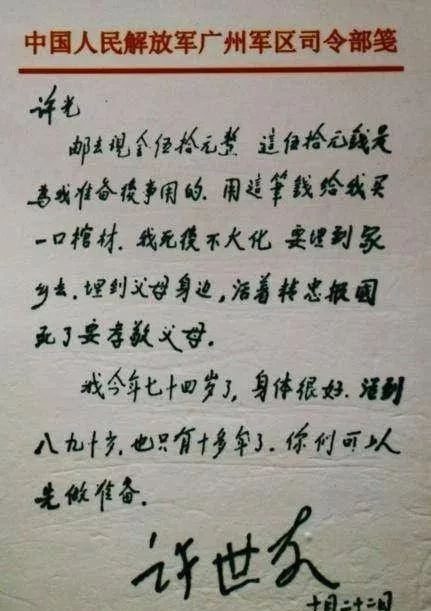 中国人民解放军广州军区司令部笺
许光
邮去现金伍拾元整 這伍拾元錢是
爲我准备後事用的.用這筆錢给我买
一口棺材.我死後不火化 要埋到家
乡去.埋到父母身边,活着转忠报國
死了要孝敬父母.
我今年七十四岁了,身体很好.活到
八九十岁,也只有十多年了.你们可以
先做准备.
许世友
十月二十二日